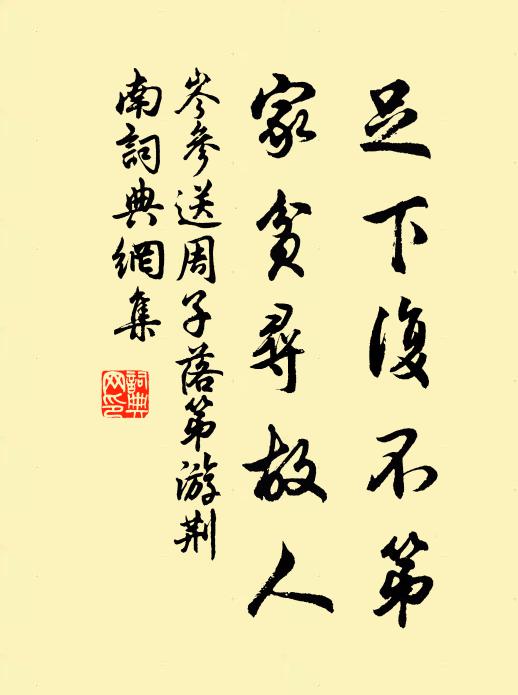 足下復不第
家貧尋故人
岑參送周子落第游荊
南詞典網集
詞典
网印